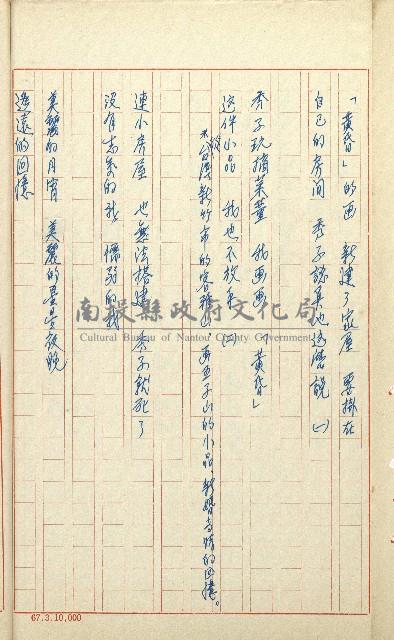 「黃昏」的画 新建了家屋 要掛在
自己的房间 秀子認真地這麼説 (一)
秀子玩摘菜薹 我画画「黃昏」
這件小品 我也不放手 (二)
台灣新竹市的客雅山,画 子山的小品,新婚 情的回憶。
連小房屋 也無法搭建 秀子就死了
没有志氣的我 懦弱的我
美麗的月宵 美麗的星星夜晚
遙遠的回憶
南投縣政府文化局
Cultural Bureau of Nantou County Government
67.3.10,000